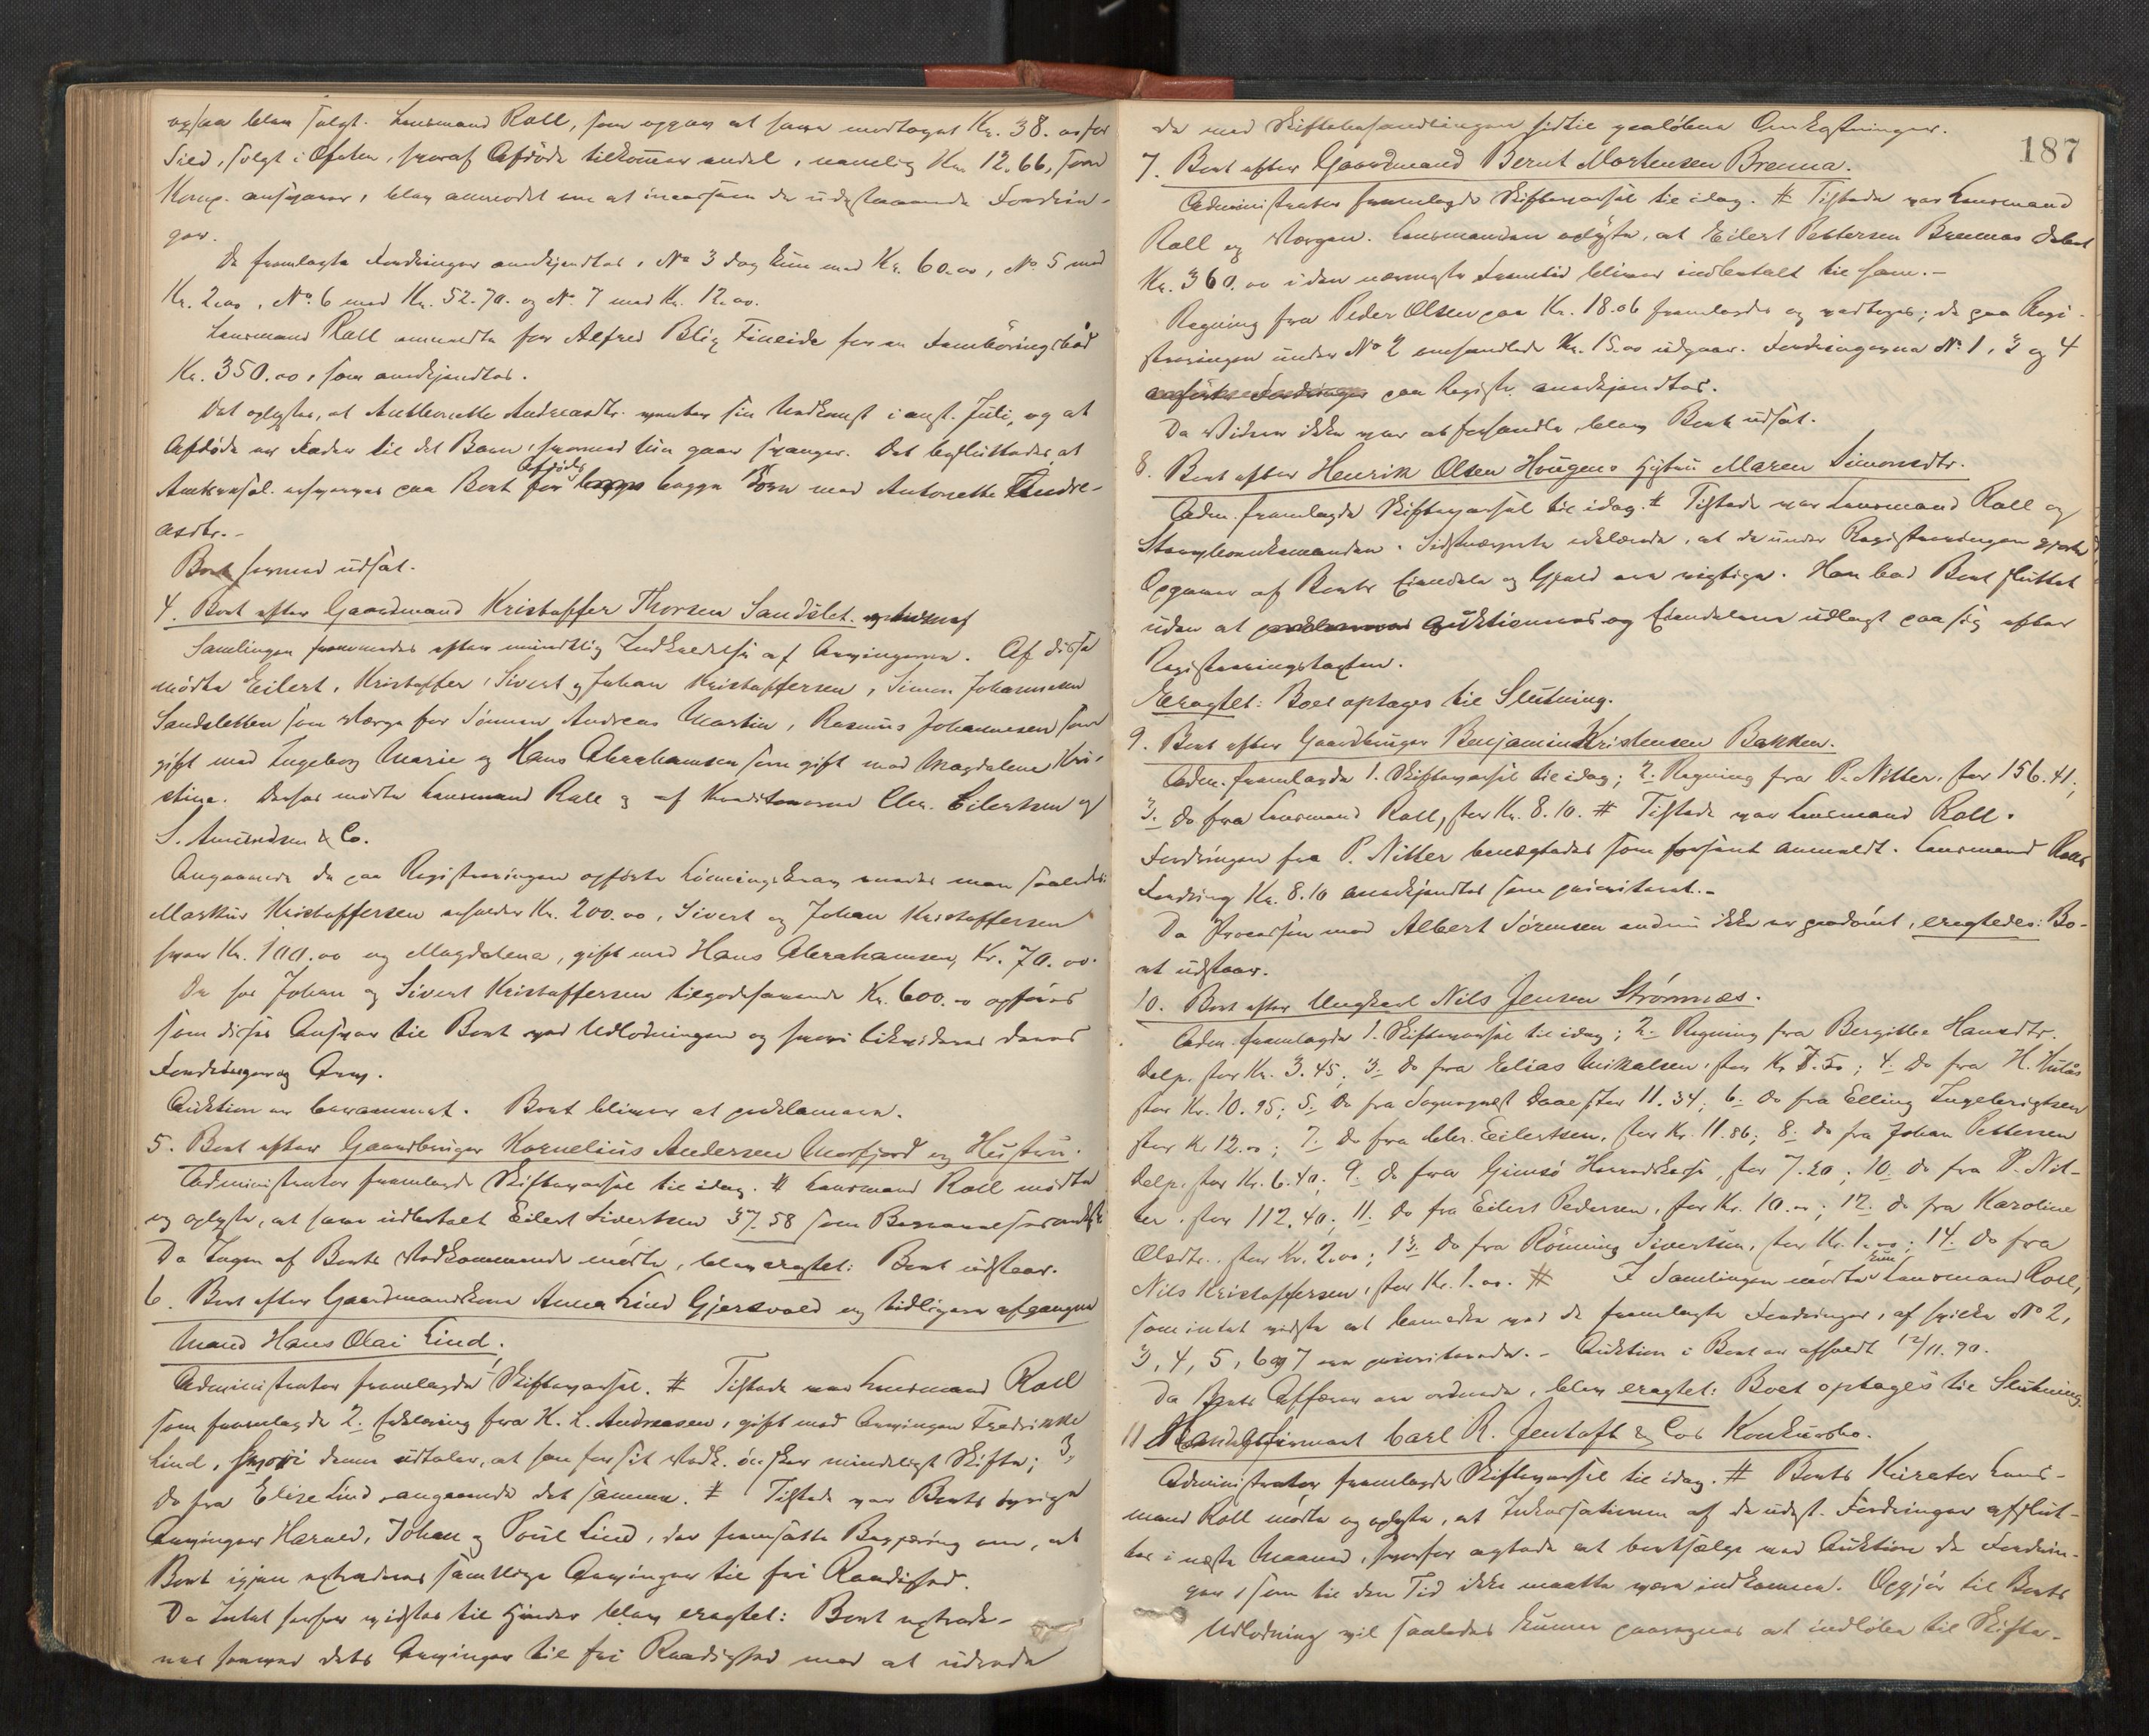 ogsaa blev solgt. Lensmand Roll, som opgav at have modtaget Kr. 38.00 for
Sild, solgt i Ofoten, hvoraf Afdøde tilkommer andel, nemlig Kr. 12.66, som
Komp. ansvarer, blev anmodet om at incassere de udestaaende Fordrin-
ger.
De fremlagte Fordringer anerkjendtes, No 3 dog kun med Kr. 60.00, No 5 med
Kr. 2.00, No. 6 med Kr. 52.70. og No. 7 med Kr. 12.00.
Lensmand Roll anmeldte for Alfred Blix Fineide for en Fembøringsbaad
Kr. 350.00, som anerkjendtes.
Det oplystes, at Anthonette Andreasdtr. venter sin Nedkomst i Juli, og at
Afdøde er Fader til det Barn, hvormed hun gaar svanger. Det besluttedes at
paa Boet for Afdødes begge Børn med Antonette Andre-
asdtr.-
Boet hermed udsat.
4. Boet efter Gaardmand Kristoffer Thorsen Sandslet.
Samlingen foretoges efter mundtlig Indkaldelse af Arvingerne. Af disse
mødte Eilert, Kristoffer, Sivert og Johan Kristoffersen, Simon Johannesen
Sandsletten som Værge for Sønnen Andreas Martin, Rasmus Johannesen som
gift med Ingeborg Marie og Hans Abrahamsen som gift med Magdalene Kri-
stine. Derhos mødte Lensmand Roll og af Kreditorerne Chr. Eilertsen og
S. Amundsen & Co.
Angaaende de paa Registreringen opførte Lønningskrav enedes man saaledes:
Markus Kristoffersen erholder Kr. 200.00, Sivert og Johan Kristoffersen
hver Kr. 100.00 og Magdalena, gift med Hans Abrahamsen, Kr. 70.00.
De hos Johan og Sivert Kristoffersen tilgodehavende Kr. 600.00 opføres
som disses Ansvar til Boet ved Udlodningen og heri likvideres deres
Fordringer og Arv.
Auktion er berammet. Boet bliver at proklamere.
5. Boet efter Gaardbruger Kornelius Andersen Morfjord og Hustru.
Administrator fremlagde Skiftevarsel til idag. # Lensmand Roll mødte
og oplyste, at have udbetalt Eilert Sivertsen 37.58 som
Da Ingen af Boets Vedkommende mødte, blev eragtet: Boet udstaar.
6. Boet efter Gaardmandskone Anna Lind Gjersvold og tidligere afgangne
Mand Hans Olai Lind.
Administrator fremlagde Skiftevarsel. # Tilstede var Lensmand Roll
som fremlagde 2. Erklæring fra K. L. Andreasen, gift med Arvingen Fredrikke
Lind, hvori denne udtaler, at han for sit Vedk. ønsker mindeligt Skifte; 3,
do fra Elise Lind angaaende det samme. # Tilstede var Boets øvrige
Arvinger Harald, Johan og Poul Lind, der fremsatte Begjæring om, at
Boet igjen extraderes samtlige Arvinger til fri Raadighed.
Da Intet herfor vidstes til Hinder blev eragtet: Boet extrade-
res herved dets Arvinger til fri Raadighed mod at udrede
187
de med Skiftebehandlingen hidtil paaløbne Omkostninger.
7. Boet efter Gaardmand Bernt Mortensen Brenna.
Administrator fremlagde Skiftevarsel til idag. # Tilstede var Lensmand
Roll og Værgen. Lensmanden oplyste, at Eilert Pettersen Brennas Debet
Kr. 360.00 i den nærmeste Fremtid bliver indbetalt til ham.-
Regning fra Peder Olsen paa Kr. 18.06 fremlagdes og vedtoges; de paa Regi-
streringen under No 2 omhandlede Kr. 15.00 udgaar. Fordringerne No 1, 3 og 4
paa Registr. anerkjendtes.
Da Videre ikke var at forhandle blev Boet udsat.
8. Boet efter Henrik Olsen Hougens Hustru Maren Simonsdtr.
Adm. fremlagde Skiftevarsel til idag. # Tilstede var Lensmand Roll og
Stervboenkemanden. Sidstnævnte erklærede, at de under Registreringen gjorte
Opgaver af Boets Eiendele og Gjæld ere rigtige. Han bad Boet sluttet
uden at auktioneres og Eiendelene udlagt paa sig efter
Registreringstaxten.
Eragtet: Boet optages til Slutning.
9. Boet efter Gaardbruger Benjamin Kristensen Bakken.
Adm. fremlagde 1. Skiftevarsel til idag; 2. Regning fra P. Nitter, stor 156.41;
3. do fra Lensmand Roll, stor Kr. 8.10. # Tilstede var Lensmand Roll.
Fordringen fra P. Nitter benægtedes som forsent anmeldt. Lensmand Rolls
Fordring Kr. 8.10 anerkjendtes som prioriteret.-
Da Processen mod Albert Sørensen endnu ikke er paadømt, eragtedes: Bo-
et udstaar.
10. Boet efter Ungkarl Nils Jensen Strømnæs.
Adm. fremlagde 1. Skiftevarsel til idag; 2. Regning fra Bergitte Hansdtr.
Valp. stor Kr. 3.45; 3. do fra Elias Mikalsen, stor Kr 7.50; 4. do fra H.
stor Kr. 10.95; 5. Do fra Sogneprest Daae, stor 11.34; 6. do fra Elling Ingebrigtsen
stor Kr 12.00; 7. do fra Chr. Eilertsen, stor Kr. 11.86; 8. do fra Johan Pettersen
Valp. stor Kr. 6.40; 9. do fra Gimsø Herredskasse, stor 7.20; 10. do fra P. Nit-
ter, stor 112.40; 11. do fra Eilert Pedersen, stor Kr. 10.00; 12. do fra Karoline
Olsdtr. stor Kr. 2.00; 13. do fra Rønning Sivertsen, stor Kr. 1.00; 14. do fra
Nils Kristoffersen, stor Kr. 1.00. # I Samlingen mødte kun Lensmand Roll,
som intet vidste at bemerke ved de fremlagte Fordringer, af hvilke No 2,
3, 4, 5, 6 og 7 ere prioriterede.- Auktion i Boet er afholdt 12/11. 90.
Da Boets Affærer ere ordnede, blev eragtet: Boet optages til Slutning.
11 Handelsfirmaet Carl R. Jentoft & Cos Konkursbo.
Administrator fremlagde Skiftevarsel til idag. # Boets Kurator Lens-
mand Roll mødte og oplyste, at Inkassationen af de udest. Fordringer afslut-
tes i næste Maaned, hvorfor agtede at bortsælge ved Auktion de Fordrin-
ger, som til den Tid ikke maatte være indkomne. Opgjør til Boets
Udlodning vil saaledes kunne paaregnes at indløbe til Skifte-